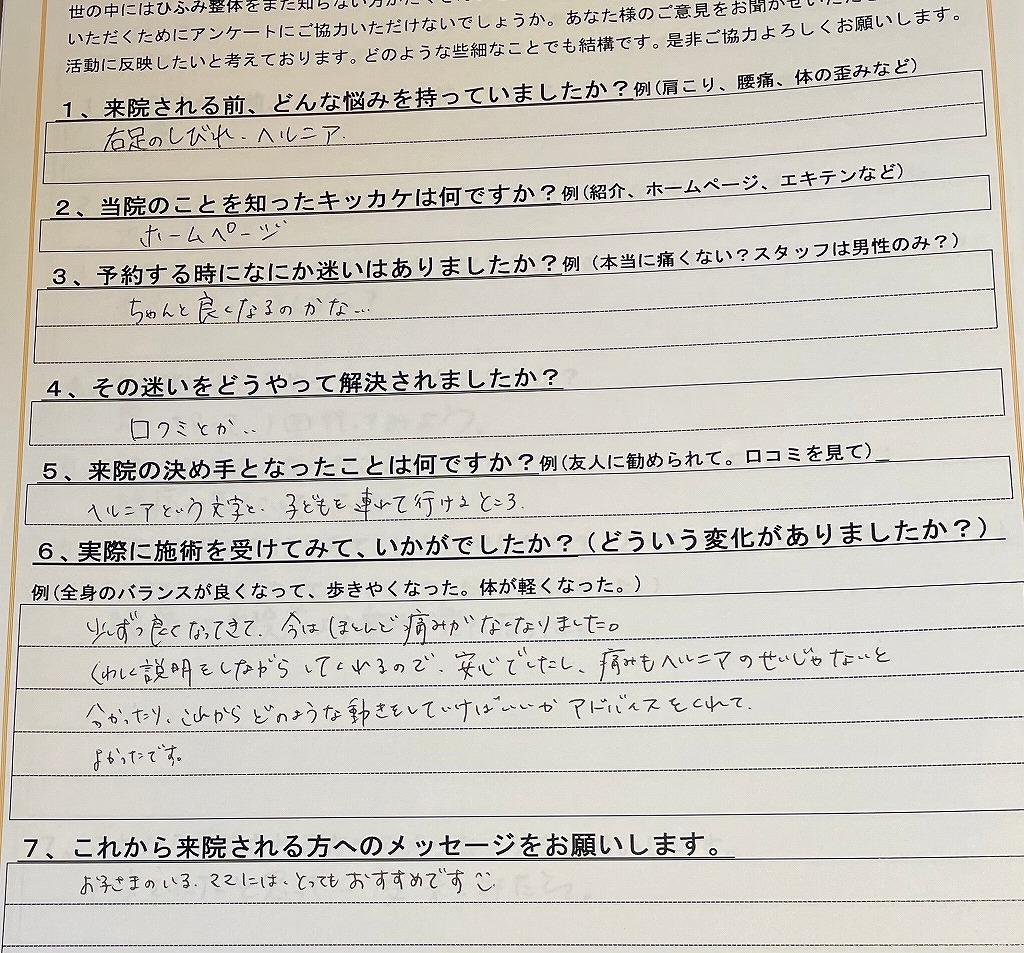 世の中にはひふみ整体をまだ知らない方が
いただくためにアンケートにご協力いただけないでしょうか。あなた様のご意見をお聞かせいただき
活動に反映したいと考えております。どのような些細なことでも結構です。是非ご協力よろしくお願いします。
1、来院される前、どんな悩みを持っていましたか?例(肩こり、腰痛、体の歪みなど)
右足のしびれ、ヘルニア.
2、当院のことを知ったキッカケは何ですか?例(紹介、ホームページ、エキテンなど)
ホームページ
3、予約する時になにか迷いはありましたか?例(本当に痛くない?スタッフは男性のみ?)
ちゃんと良くなるのかな...
4、その迷いをどうやって解決されましたか?
口クミとか..
5、来院の決め手となったことは何ですか?例(友人に勧められて。口コミを見て)
ヘルニアという文字と、子どもを連れて行けるところ.
6、実際に施術を受けてみて、いかがでしたか?(どういう変化がありましたか?)
例(全身のバランスが良くなって、歩きやくなった。体が軽くなった。)
少しずつ良くなってきて、今はほとんど痛みがなくなりました。
くわしく説明をしながらしてくれるので、安心でしたし、痛みもヘルニアのせいじゃないと
分かったり、これからどのような動きをしていけばいいかアドバイスをくれて、
よかったです。
7、これから来院される方へのメッセージをお願いします。
お子さまのいる、ママには、とってもおすすめです